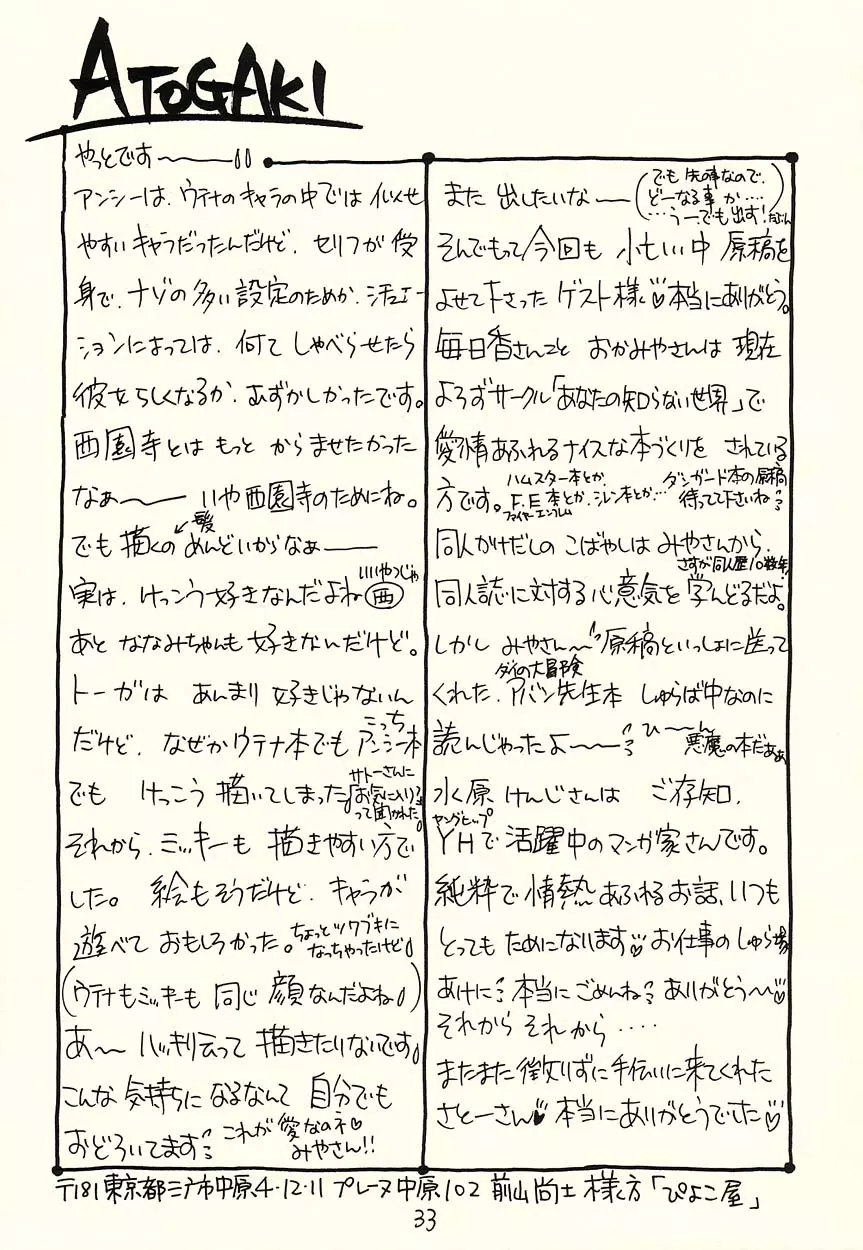 ATOGAKI
やっとです〜〜
アンシーは、ウテナのキャラの中ではイメせ
やすいキャラだったんだけど、セリフが受
身で、ナゾの多い設定のためか、シチュエー
ションによっては、何て しゃべらせたら
彼女らしくなるか、むずかしかったです。
西園寺とは もっと からませたかった
なぁ〜〜 いや西園寺のためにね。
でも描くの めんどいからなぁ――
髪
実は、けっこう好きなんだよね 西
いいやつじゃ
あと ななみちゃんも 好きなんだけど。
トーガは あんまり 好きじゃないん
だけど、なぜかウテナ本でも アンシー本
こっち
でも けっこう 描いてしまった
サトーさんに
お気に入り?
って聞かれた。
それから、ミッキーも 描きやすい方で
した。 絵もそうだけど、キャラが
遊べて おもしろかった。
ちょっとツワブキに
なっちゃったけど
(ウテナもミッキーも 同じ 顔なんだよね)
あ〜 ハッキリ云って 描きたりないです
こんな 気持ちに なるなんて 自分でも
おどろいてます
これが 愛なのネ♡
みやさん!!
また 出したいな〜
(でも 先の事なので、
どーなる事 か‥‥
‥‥うーでも出す!たぶん)
そんでもって今回も 小忙しい中 原稿を
よせて下さった ゲスト様く♡本当にありがとう。
毎日香さんこと おかみやさんは 現在
よろずサークル「あなたの知らない世界」で
愛情あふれるナイスな本づくりを されている
方です。
ハムスター本とか、
F.E本とか、シレン本とか‥‥
ファイヤーエンブレム
ダンガード本の原稿
待ってて下さいね
同人かけだしの こばやしは みやさんから、
さすが同人屋10数年!
同人誌に対する心意気を 学んどるだよ。
しかし みやさん〜 原稿といっしょに送って
くれた、アバン先生本 しゅらば中なのに
ダイの大冒険
読んじゃったよ〜〜
ひ〜〜ん
悪魔の本だぁぁ
水原 けんじさんは ご存知、
YHで 活躍中のマンガ家さんです。
ヤングヒップ
純粋で 情熱 あふれるお話、いつも
とっても ためになります♡ お仕事の しゅら場
あけに 本当に ごめんね ありがとう〜♡
それから それから‥‥
またまた 懲りずに 手伝いに 来てくれた
さとーさん♥ 本当にありがとうでした♡
〒181 東京都三鷹市中原4・12・11 プレーヌ中原102 前山尚士 様く方「ぴよこ屋」
33